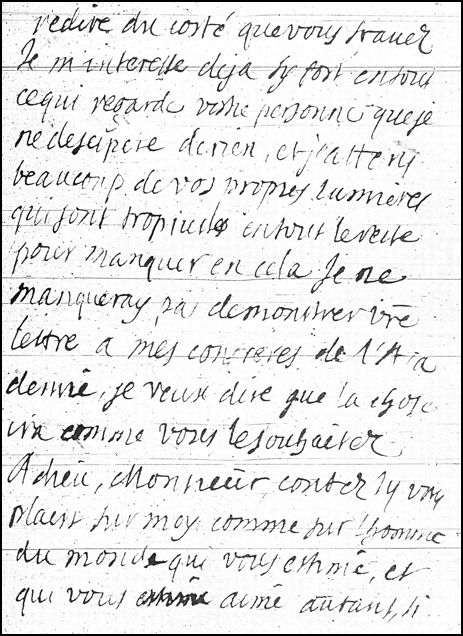 redire du costé que vous scavez
Je m'interesse deja sy fort en tout
ce qui regarde vostre personne que je
ne desespere de rien, et j'attens
beaucoup de vos propres lumieres
qui sont trop justes en tout le reste
pour manquer en cela Je ne
manqueray pas de monstrer vre
lettre a mes confreres de l'Aca
demie, je veux dire que la chose
ira comme vous le souhaitez
Adieu, Monsieur, contez sy vous
plaist sur moy comme sur l'homme
du monde qui vous estime, et
qui vous aime autant, si